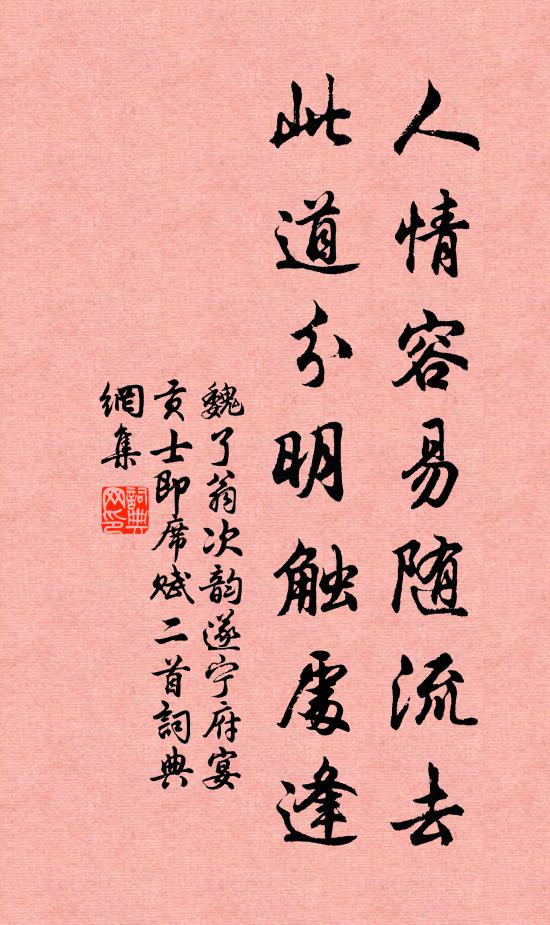 人情容易随流去
此道分明触處逢
魏了翁次韵遂宁府宴
贡士即席赋二首詞典
網集
詞典网印